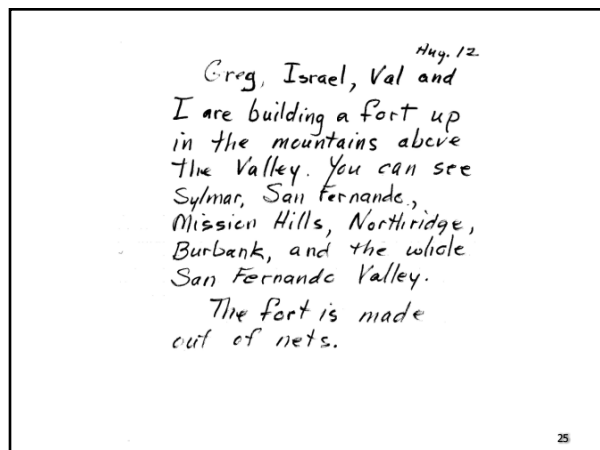 Aug. 12
Greg, Israel, Val and
I are building a fort up
in the mountains above
the Valley. You can see
Sylmar, San Fernando,
Mission Hills, Northridge,
Burbank, and the whole
San Fernando Valley.
The fort is made
out of nets.
25